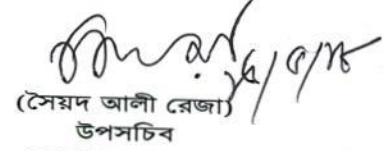 (সৈয়দ আলী রেজা)
উপসচিব